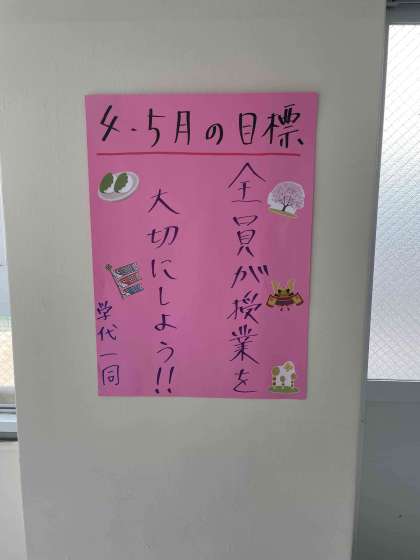 4.5月の目標
全員が授業を
大切にしよう!!
学代一同